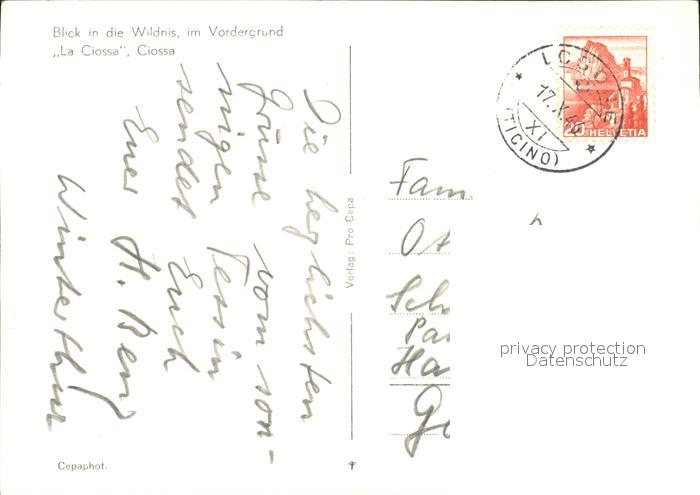 Blick in die Wildnis, im Vordergrund
„La Ciossa", Ciossa
Die herzlichsten
Grüsse vom son-
nigen Tessin
sendet Euch
Euer H.
Winterthur
Verlag: Pro Cepa
Cepaphot.
17.X.46
XI
(TICINO)
20 HELVETIA
Fam.
privacy protection
Datenschutz